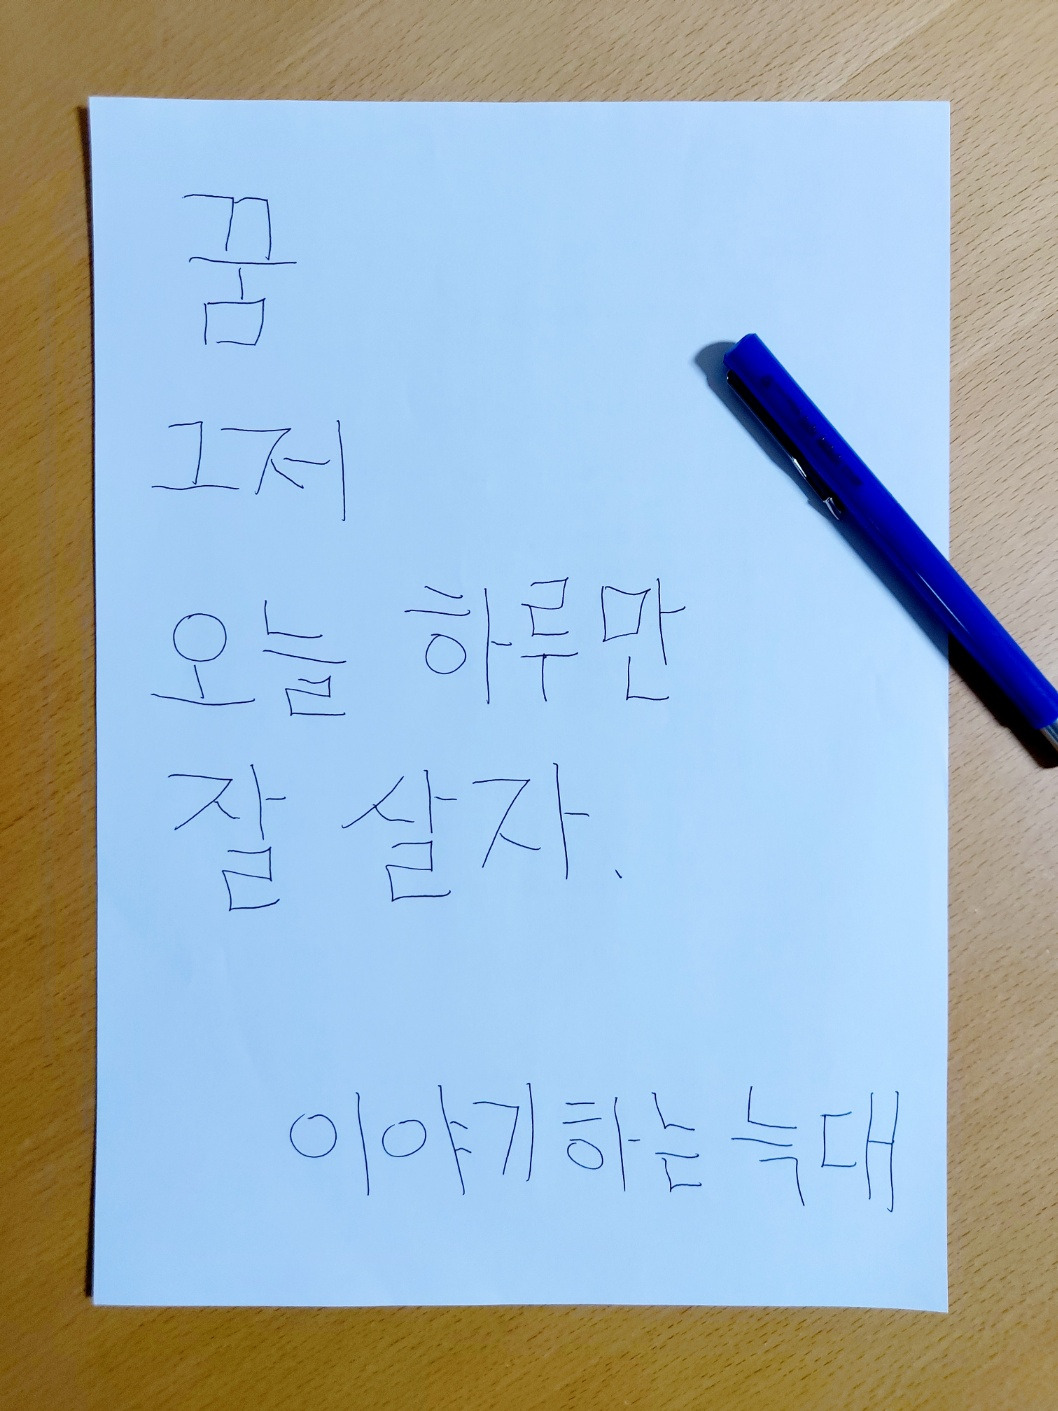 꿈
그저
오늘 하루만
잘 살자.
이야기하는 늑대